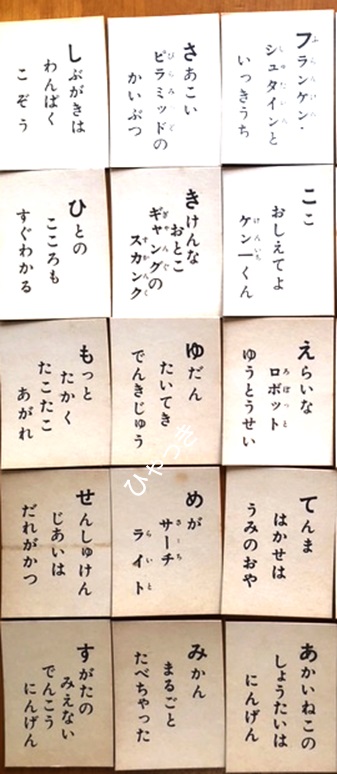 フランケン・
シュタインと
いっきうち
さあこい
ピラミッドの
かいぶつ
しぶがきは
わんぱく
こぞう
ここ
おしえてよ
ケン一くん
きけんな
おとこ
ギャングの
スカンク
ひとの
こころも
すぐわかる
えらいな
ロボット
ゆうとうせい
ゆだん
たいてき
でんきじゅう
もっと
たかく
たこたこ
あがれ
てんま
はかせは
うみのおや
めが
サーチ
ライト
せんしゅけん
じあいは
だれがかつ
あかいねこの
しょうたいは
にんげん
みかん
まるごと
たべちゃった
すがたの
みえない
でんこう
にんげん
ひやつき